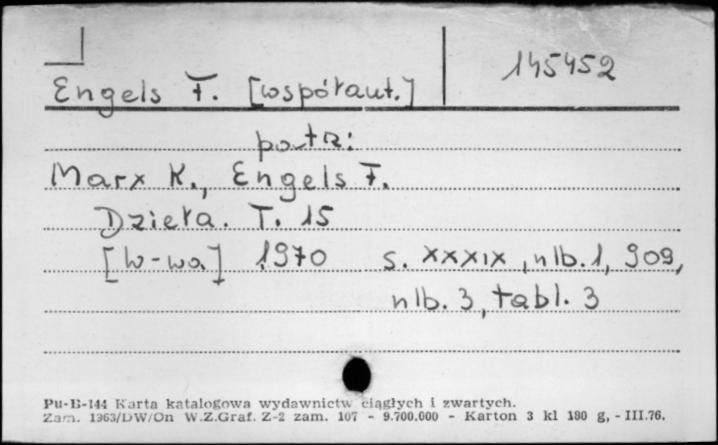 145452
Engels F. [współaut.]
patrz:
Marx K., Engels F.
Dzieła. T. 15
[W-wa] 1970 s. XXXIX, nlb. 1, 909,
nlb. 3, tabl. 3
Pu-B-144 Karta katalogowa wydawnictw ciągłych i zwartych.
Zam. 1363/DW/On W.Z.Graf. Z-2 zam. 107 - 9.700.000 - Karton 3 kl 180 g, - III.76.